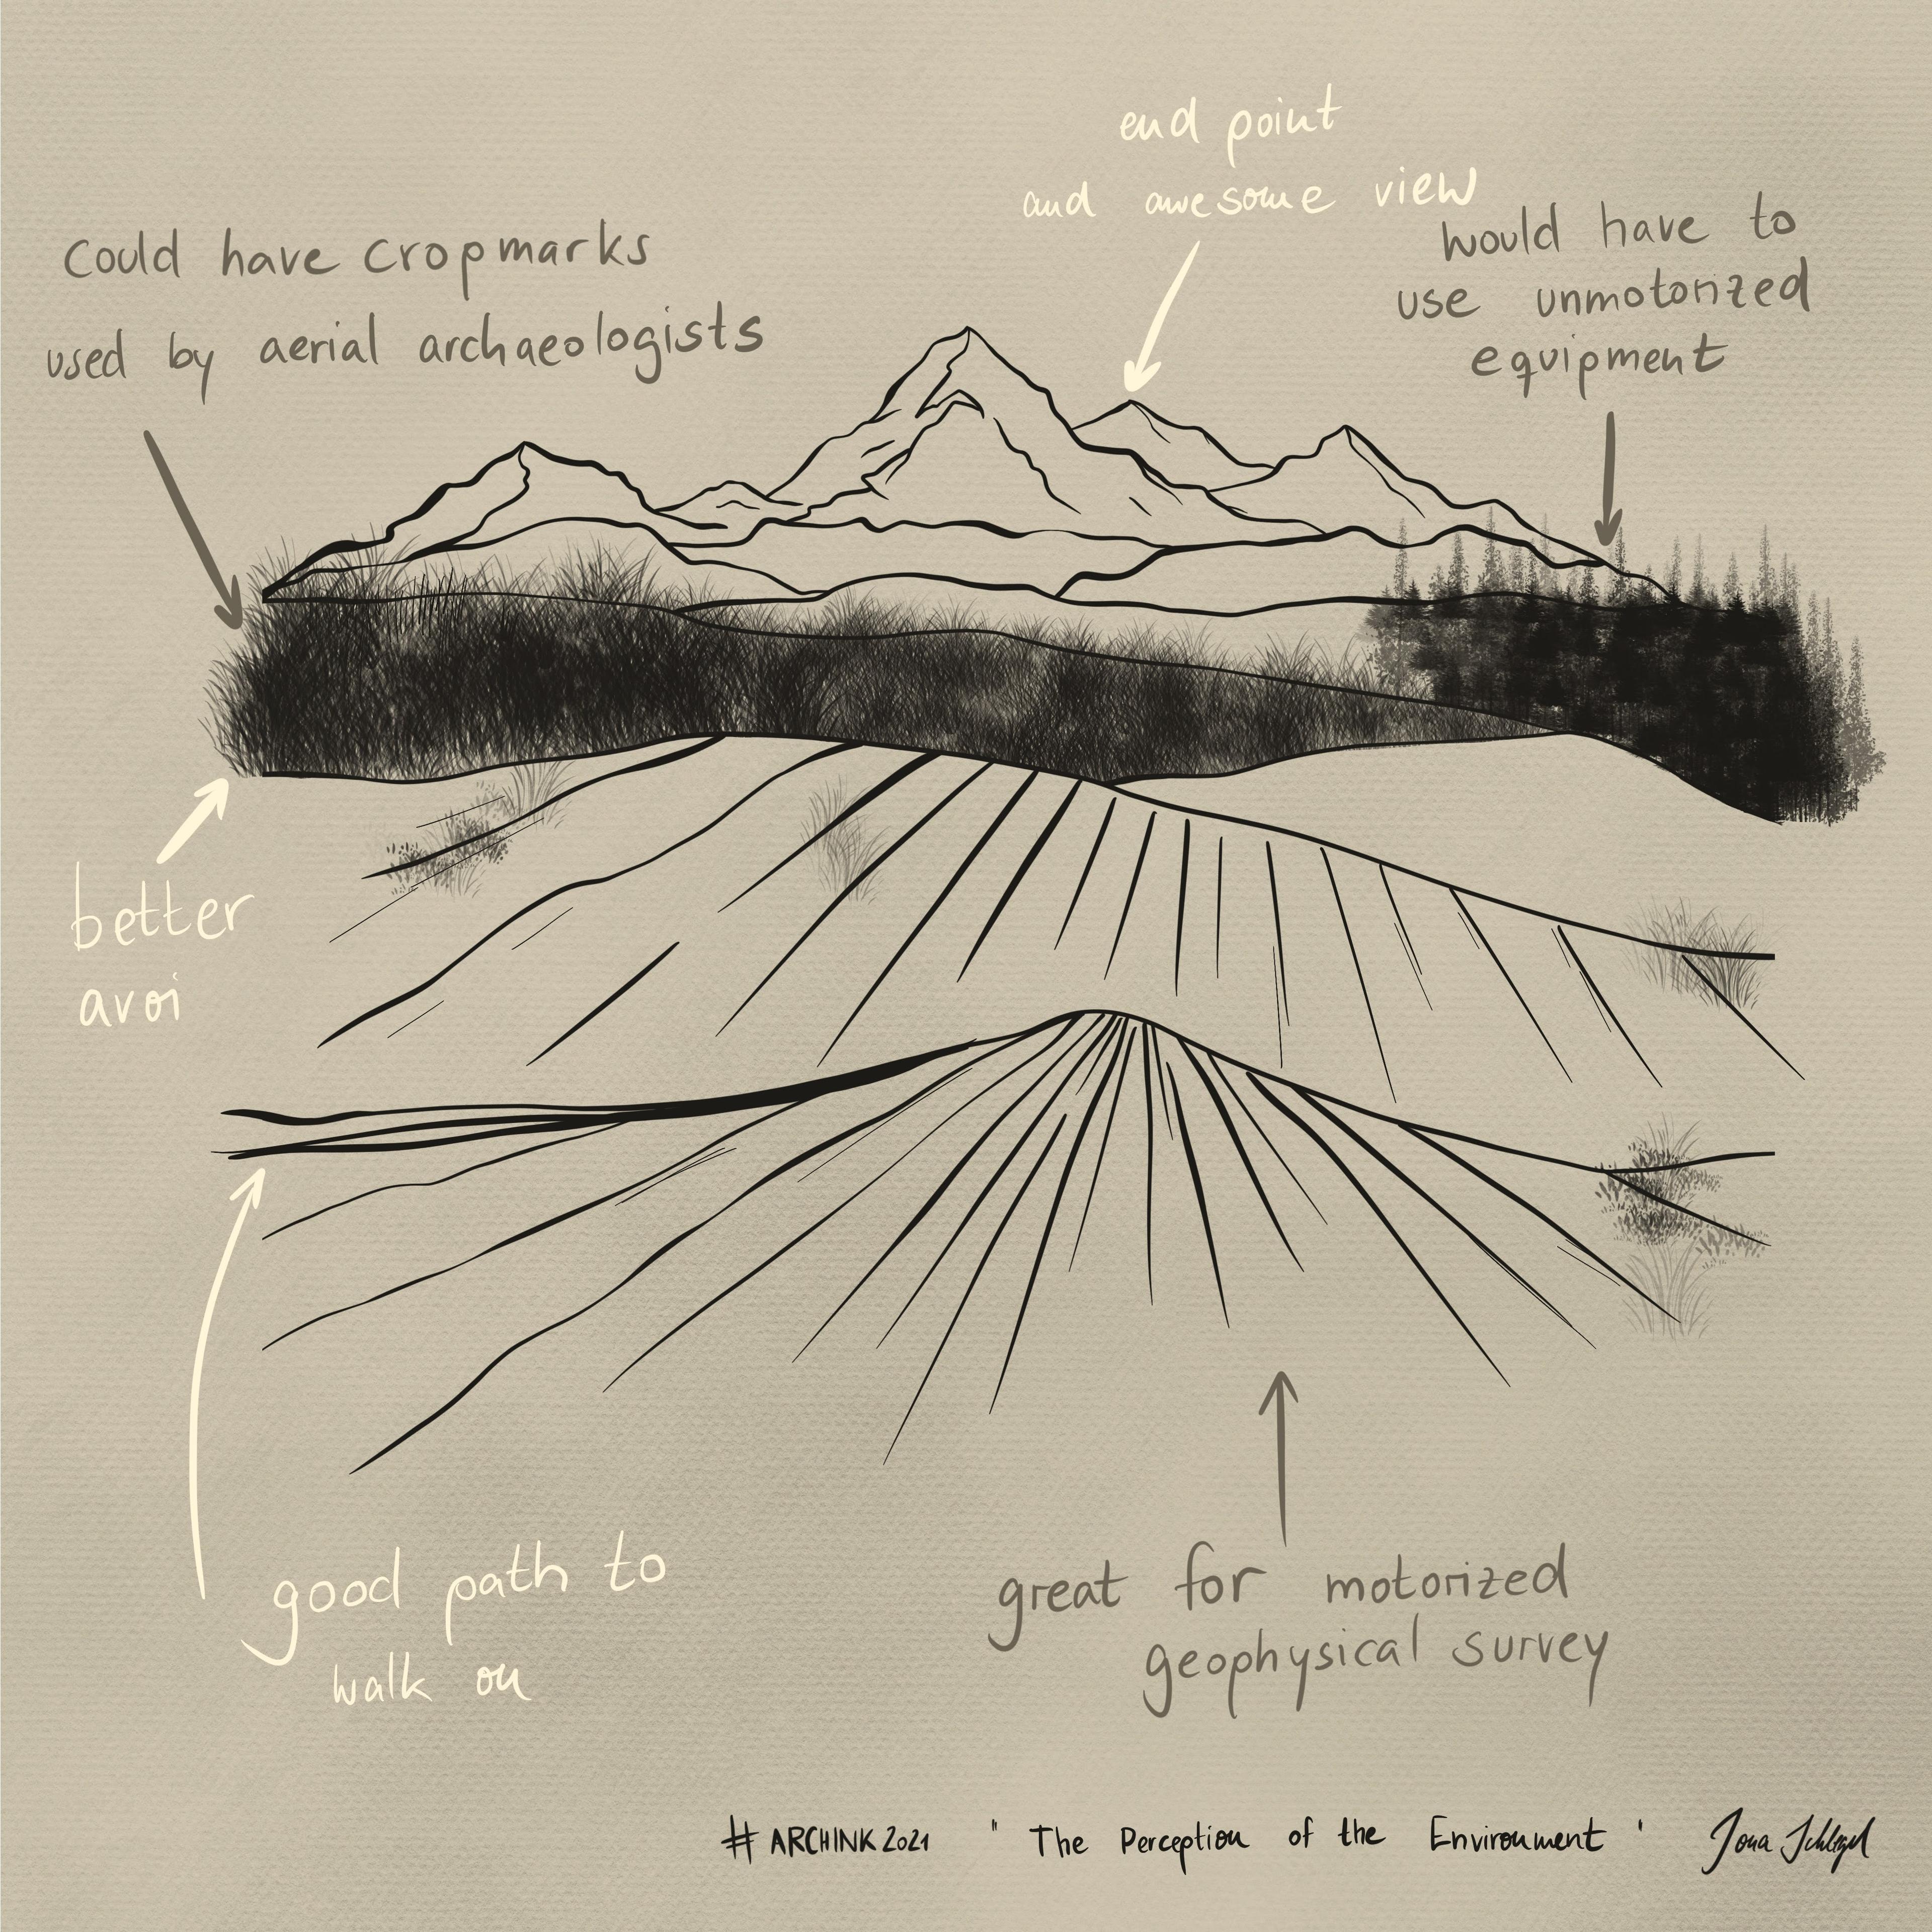 end point
and awesome view
Could have cropmarks
used by aerial archaeologists
would have to
use unmotorized
equipment
better
avoi
good path to
walk on
great for motorized
geophysical survey
# ARCHINK 2021 " The Perception of the Environment ' Jona Schlegel